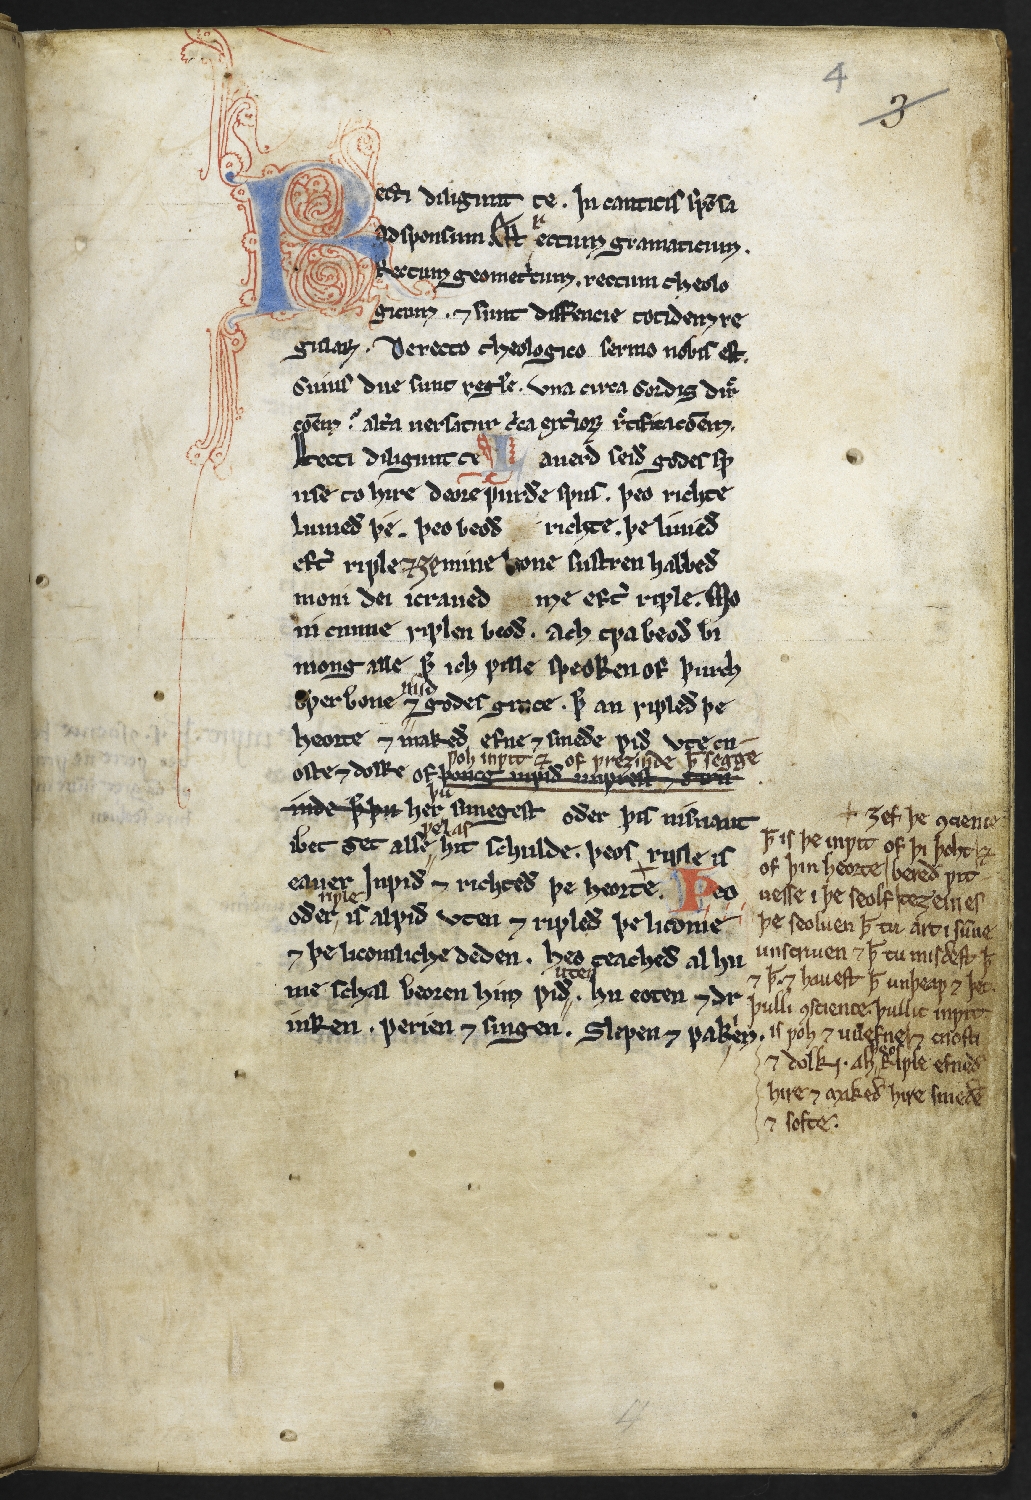 4
3
Recti diligunt te. In canticis sp̄o̅sa
ad sponsum. Est rectum gramaticum.
Rectum geometricum. rectum theolo
gicum. ⁊ sunt differencie totidem re
gularꝝ. De recto theologico sermo nobis est.
cuius due sunt regle. Vna circa cordis dir̄
coēm. alta uersatur c̄ca ext̄ioꝝ r̄ctificacoēm.
Recti diligunt te Lauerd seið godes sp
use to hire deore ƿurðe spus. þeo richte
luuieð þe. þeo beoð richte. þe luuieð
eft̄ riƿle. Ȝe mine leoue sustren habbeð
moni dei icraued me eft̄ riƿle. Mo
ni cunne riƿlen beoð. Ach tƿa beoð bi
mong alle þ̄ ich ƿille speoken of þurch
ower bone ⁊ mid godes grace. þ̄ an riwleð þe
heorte ⁊ makeð efne ⁊ smeðe wið ute cn
oste ⁊ dolke of ƿoh inƿit ⁊ of wreiȝinde þ̄ segge
her þu sunegest oðer þis nis nawt
ibet ȝet alse wel as hit schulde. þeos riƿle is
eauer Inƿið ⁊ richteð þe heorte. + Þeo
oðer riƿle is al ƿið uten ⁊ riƿleð þe licome
⁊ þe licomliche deden. heo teacheð al hu
me schal beoren him ƿið uten. hu eoten ⁊ dr
inken. werien ⁊ singen. Slepen ⁊ waken.
+ Ȝef þe ꝯcience
þ̄ is þe inƿit of þi þoht ⁊
of þin heorte bereð ƿit
nesse i þe seolf teȝeines
þe seoluen þ̄ tu art i sunne
unscriuen ⁊ þ̄ tu misdest þ̄
⁊ þ̄. ⁊ hauest þ̄ unþeaƿ ⁊ þet.
þulli ꝯcience. þullic inƿit
is ƿoh ⁊ unefne ⁊ cnosti
⁊ dolki. ah þeos riƿle efneð
hire ⁊ makeð hire smeðe
⁊ softe.